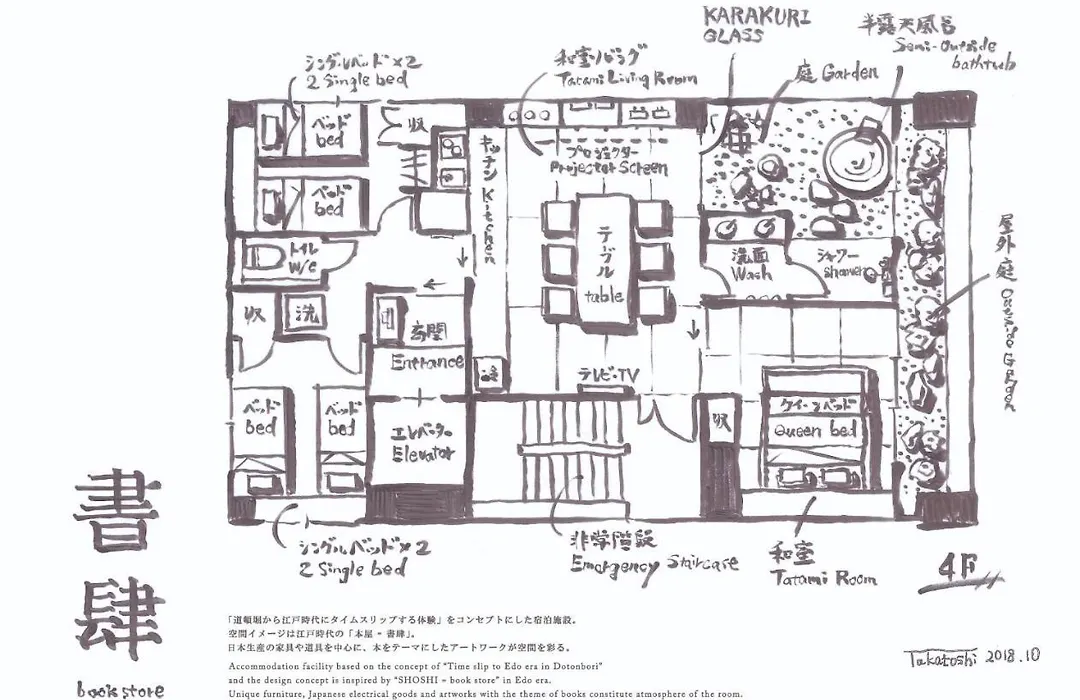 KARAKURI
GLASS
半露天風呂
Semi-outside
bathtub
シングルベッド×2
2 Single bed
和室リビング
Tatami Living Room
庭 Garden
ベッド
bed
収
キッチン Kitchen
プロジェクター
Projector Screen
ベッド
bed
トイレ
W/C
テーブル
table
洗面
Wash
シャワー
shower
屋外庭 Outside Garden
収
洗
玄関
Entrance
テレビ・TV
ベッド
bed
ベッド
bed
エレベーター
Elevator
収
クイーンベッド
Queen bed
シングルベッド×2
2 Single bed
非常階段
Emergency Staircase
和室
Tatami Room
4F
書
肆
book store
「道頓堀から江戸時代にタイムスリップする体験」をコンセプトにした宿泊施設。
空間イメージは江戸時代の「本屋 = 書肆」。
日本生産の家具や道具を中心に、本をテーマにしたアートワークが空間を彩る。
Accommodation facility based on the concept of "Time slip to Edo era in Dotonbori"
and the design concept is inspired by "SHOSHI = book store" in Edo era.
Unique furniture, Japanese electrical goods and artworks with the theme of books constitute atmosphere of the room.
Takatoshi 2018.10